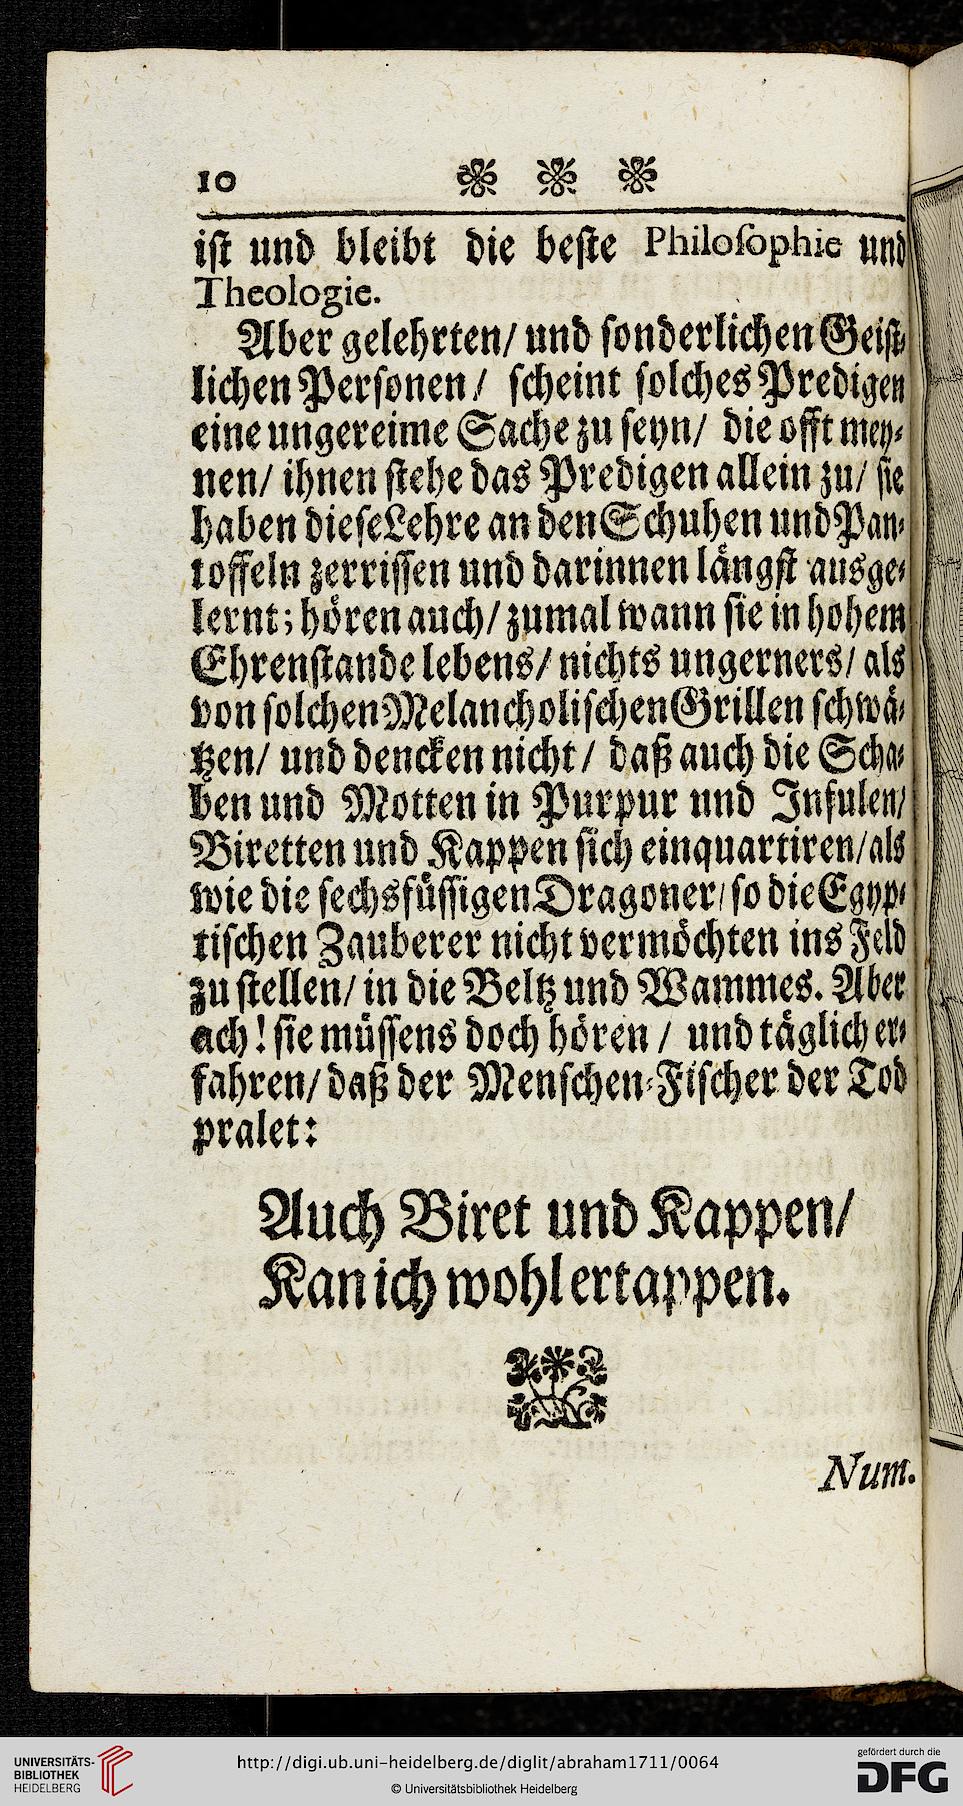 10
ist und bleibt die beste Philosophie und
Theologie.
Aber gelehrten/ und sonderlichen Geist-
lichen Personen/ scheint solches Predigen
eine ungereime Sache zu seyn/ die offt mey-
nen/ ihnen stehe das Predigen allein zu/ sie
haben diese Lehre an den Schuhen und Pan-
toffeln zerrissen und darinnen längst ausge-
lernt; hören auch/ zumal wann sie in hohem
Ehrenstande lebens/ nichts ungerners/ als
von solchen Melancholischen Grillen schwä-
tzen/ und dencken nicht/ daß auch die Scha-
ben und Motten in Purpur und Insulen/
Biretten und Kappen sich einquartiren/ als
wie die sechsfüssigen Dragoner/ so die Egyp-
tischen Zauberer nicht vermöchten ins Feld
zu stellen/ in die Beltz und Wammes. Aber
ach! sie müssens doch hören/ und täglich er-
fahren/ daß der Menschen-Fischer der Tod
pralet:
Auch Biret und Kappen/
Kan ich wohl ertappen.
Num.
UNIVERSITÄTS-
BIBLIOTHEK
HEIDELBERG
http://digi.ub.uni-heidelberg.de/diglit/abraham1711/0064
© Universitätsbibliothek Heidelberg
gefördert durch die
DFG